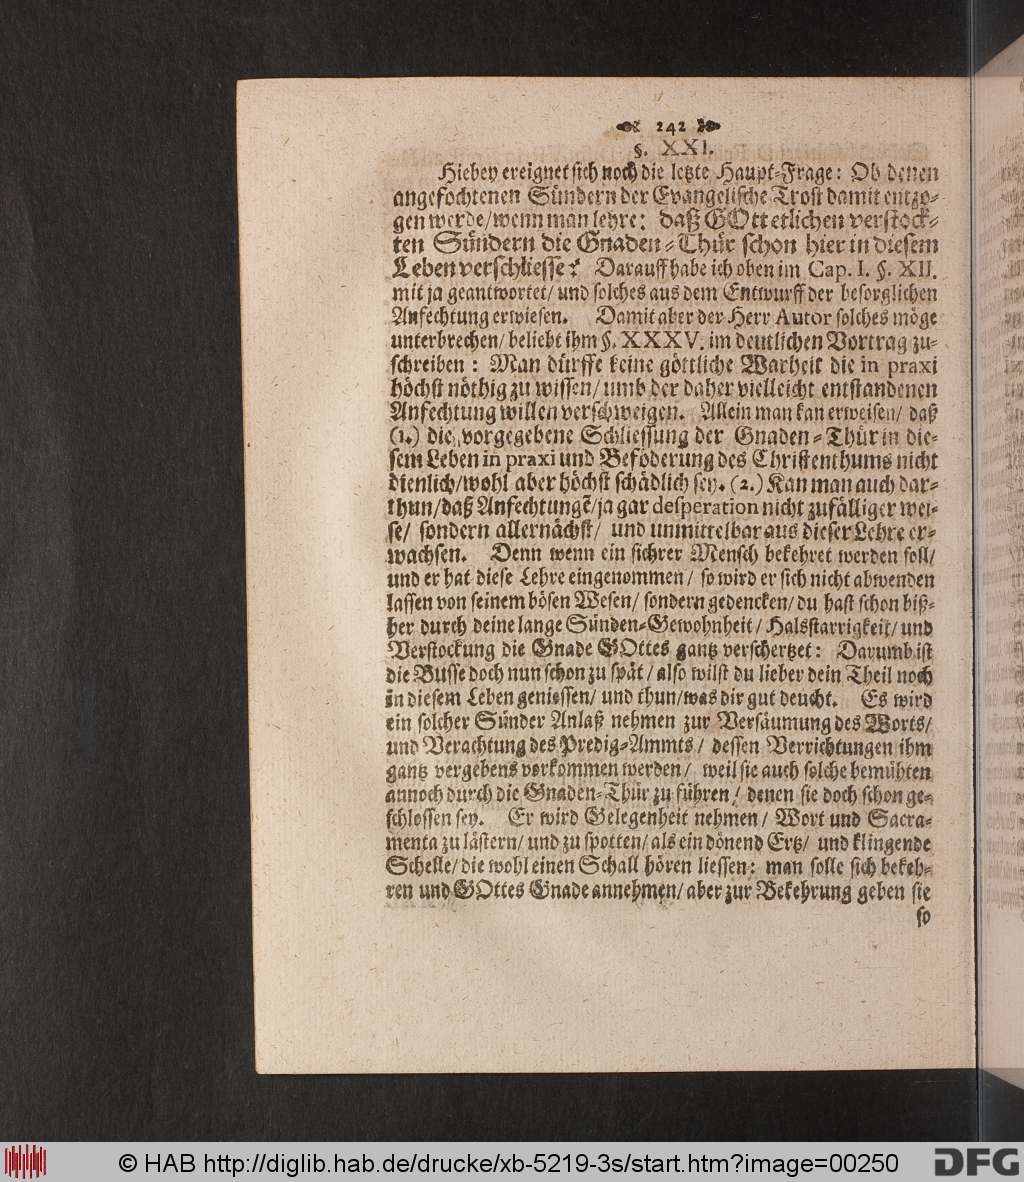 242
§. XXI.
Hiebey ereignet sich noch die letzte Haupt-Frage: Ob denen
angefochtenen Sündern der Evangelische Trost damit entzo-
gen werde/wenn man lehre: daß GOtt etlichen verstock-
ten Sündern die Gnaden-Thür schon hier in diesem
Leben verschliesse? Darauff habe ich oben im Cap. I. §. XII.
mit ja geantwortet/ und solches aus dem Entwurff der besorglichen
Anfechtung erwiesen. Damit aber der Herr Autor solches möge
unterbrechen/ beliebt ihm §. XXXV. im deutlichen Vortrag zu-
schreiben: Man dürffe keine göttliche Warheit die in praxi
höchst nöthig zu wissen/ umb der daher vielleicht entstandenen
Anfechtung willen verschweigen. Allein man kan erweisen/ daß
(1.) die vorgegebene Schliessung der Gnaden-Thür in die-
sem Leben in praxi und Beföderung des Christenthums nicht
dienlich/wohl aber höchst schädlich sey. (2.) Kan man auch dar-
thun/daß Anfechtungẽ/ja gar desperation nicht zufälliger wei-
se/ sondern allernächst/ und unmittelbar aus dieser Lehre er-
wachsen. Denn wenn ein sichrer Mensch bekehret werden soll/
und er hat diese Lehre eingenommen/ so wird er sich nicht abwenden
lassen von seinem bösen Wesen/ sondern gedencken/ du hast schon biß-
her durch deine lange Sünden-Gewohnheit/ Halsstarrigkeit/ und
Verstockung die Gnade GOttes gantz verschertzet: Darumb ist
die Busse doch nun schon zu spät/ also wilst du lieber dein Theil noch
in diesem Leben geniessen/ und thun/was dir gut deucht. Es wird
ein solcher Sünder Anlaß nehmen zur Versäumung des Worts/
und Verachtung des Predig-Ammts/ dessen Verrichtungen ihm
gantz vergebens vorkommen werden/ weil sie auch solche bemühten
annoch durch die Gnaden-Thür zu führen/ denen sie doch schon ge-
schlossen sey. Er wird Gelegenheit nehmen/ Wort und Sacra-
menta zu lästern/ und zu spotten/ als ein dönend Ertz/ und klingende
Schelle/ die wohl einen Schall hören liessen: man solle sich bekeh-
ren und GOttes Gnade annehmen/ aber zur Bekehrung geben sie
so
© HAB http://diglib.hab.de/drucke/xb-5219-3s/start.htm?image=00250
DFG